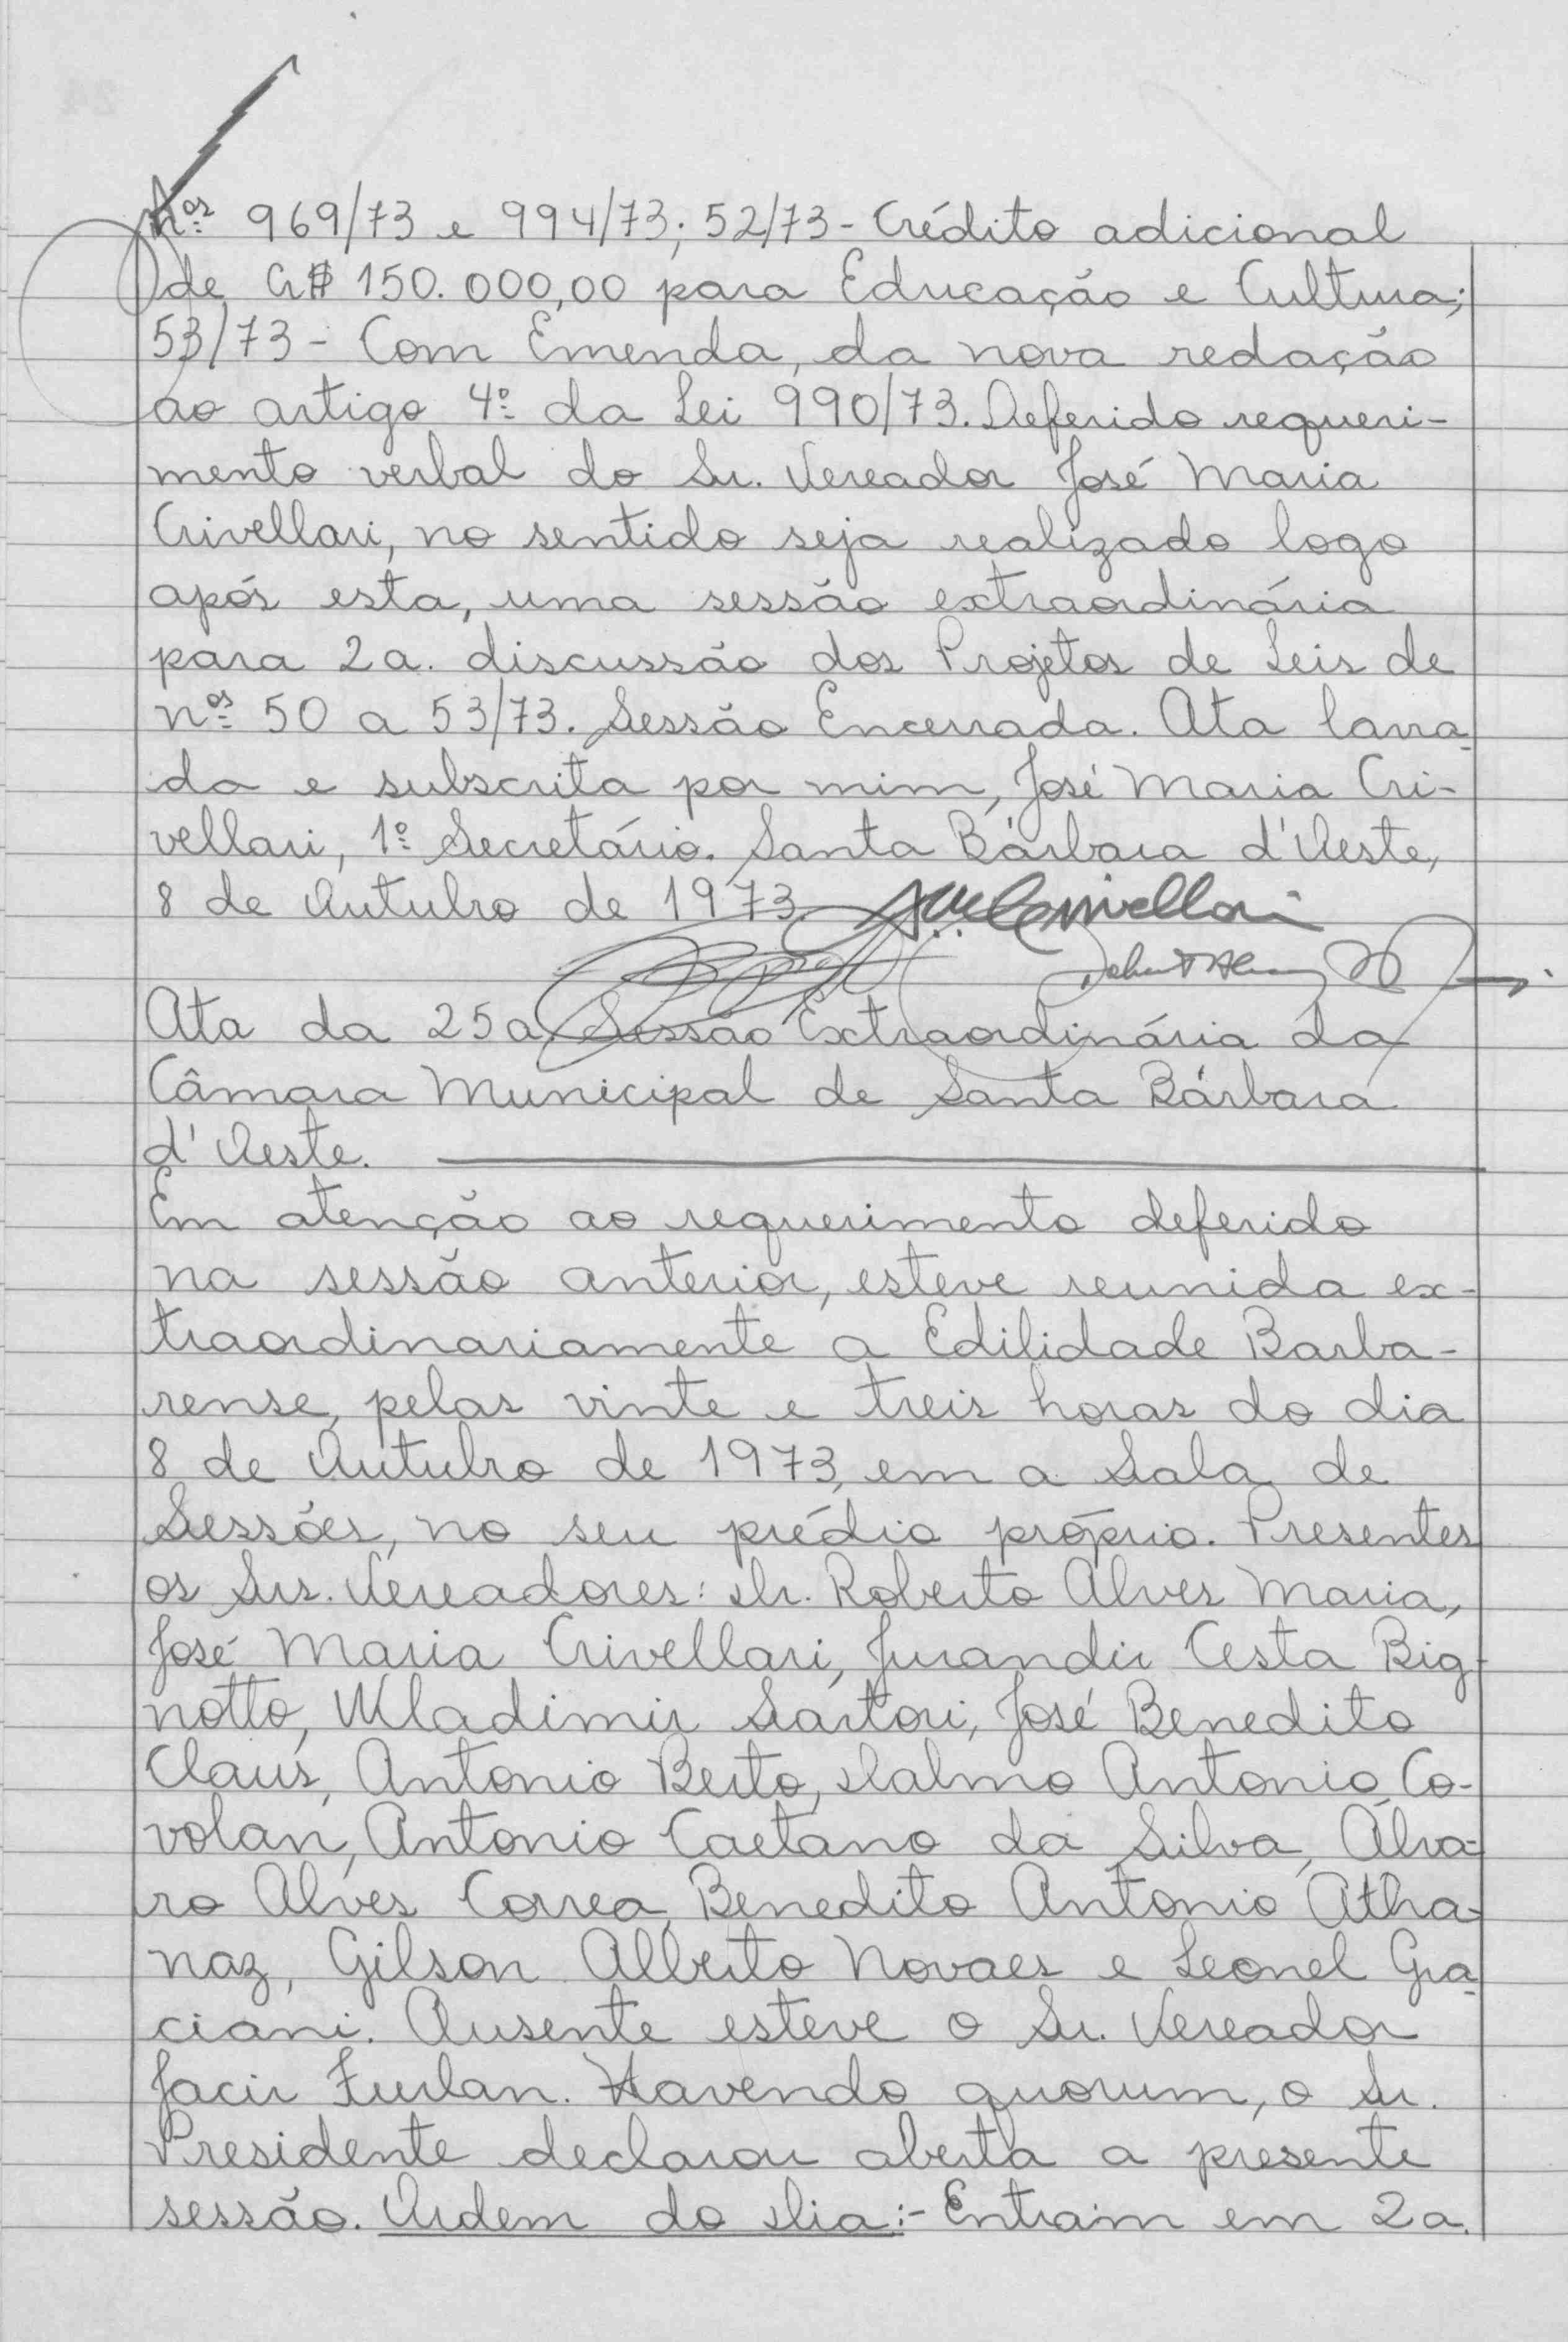 nºs 969/73 e 994/73; 52/73 - Crédito adicional
de Cr$ 150.000,00 para Educação e Cultura;
53/73 - Com Emenda, da nova redação
ao artigo 4º da Lei 990/73. Deferido requeri-
mento verbal do Sr. Vereador José Maria
Crivellari, no sentido seja realizado logo
após esta, uma sessão extraordinária
para 2a. discussão dos Projetos de Leis de
nºs 50 a 53/73. Sessão Encerrada. Ata lavra-
da e subscrita por mim, José Maria Cri-
vellari, 1º Secretário. Santa Bárbara d'Oeste,
8 de Outubro de 1973.
Crivellari
Ata da 25a. Sessão Extraordinária da
Câmara Municipal de Santa Bárbara
d'Oeste.
Em atenção ao requerimento deferido
na sessão anterior, esteve reunida ex-
traordinariamente a Edilidade Barba-
rense, pelas vinte e treis horas do dia
8 de Outubro de 1973, em a Sala de
Sessões, no seu prédio próprio. Presentes
os Srs. Vereadores: Dr. Roberto Alves Maria,
José Maria Crivellari, Jurandir Cesta Big-
notto, Wladimir Sartori, José Benedito
Claus, Antonio Berto, Dalmo Antonio Co-
volan, Antonio Caetano da Silva, Álva-
ro Alves Correa, Benedito Antonio Atha-
naz, Gilson Alberto Novaes e Leonel Gra-
ciani. Ausente esteve o Sr. Vereador
Jacir Furlan. Havendo quorum, o Sr.
Presidente declarou aberta a presente
sessão. Ordem do Dia:- Entram em 2a.